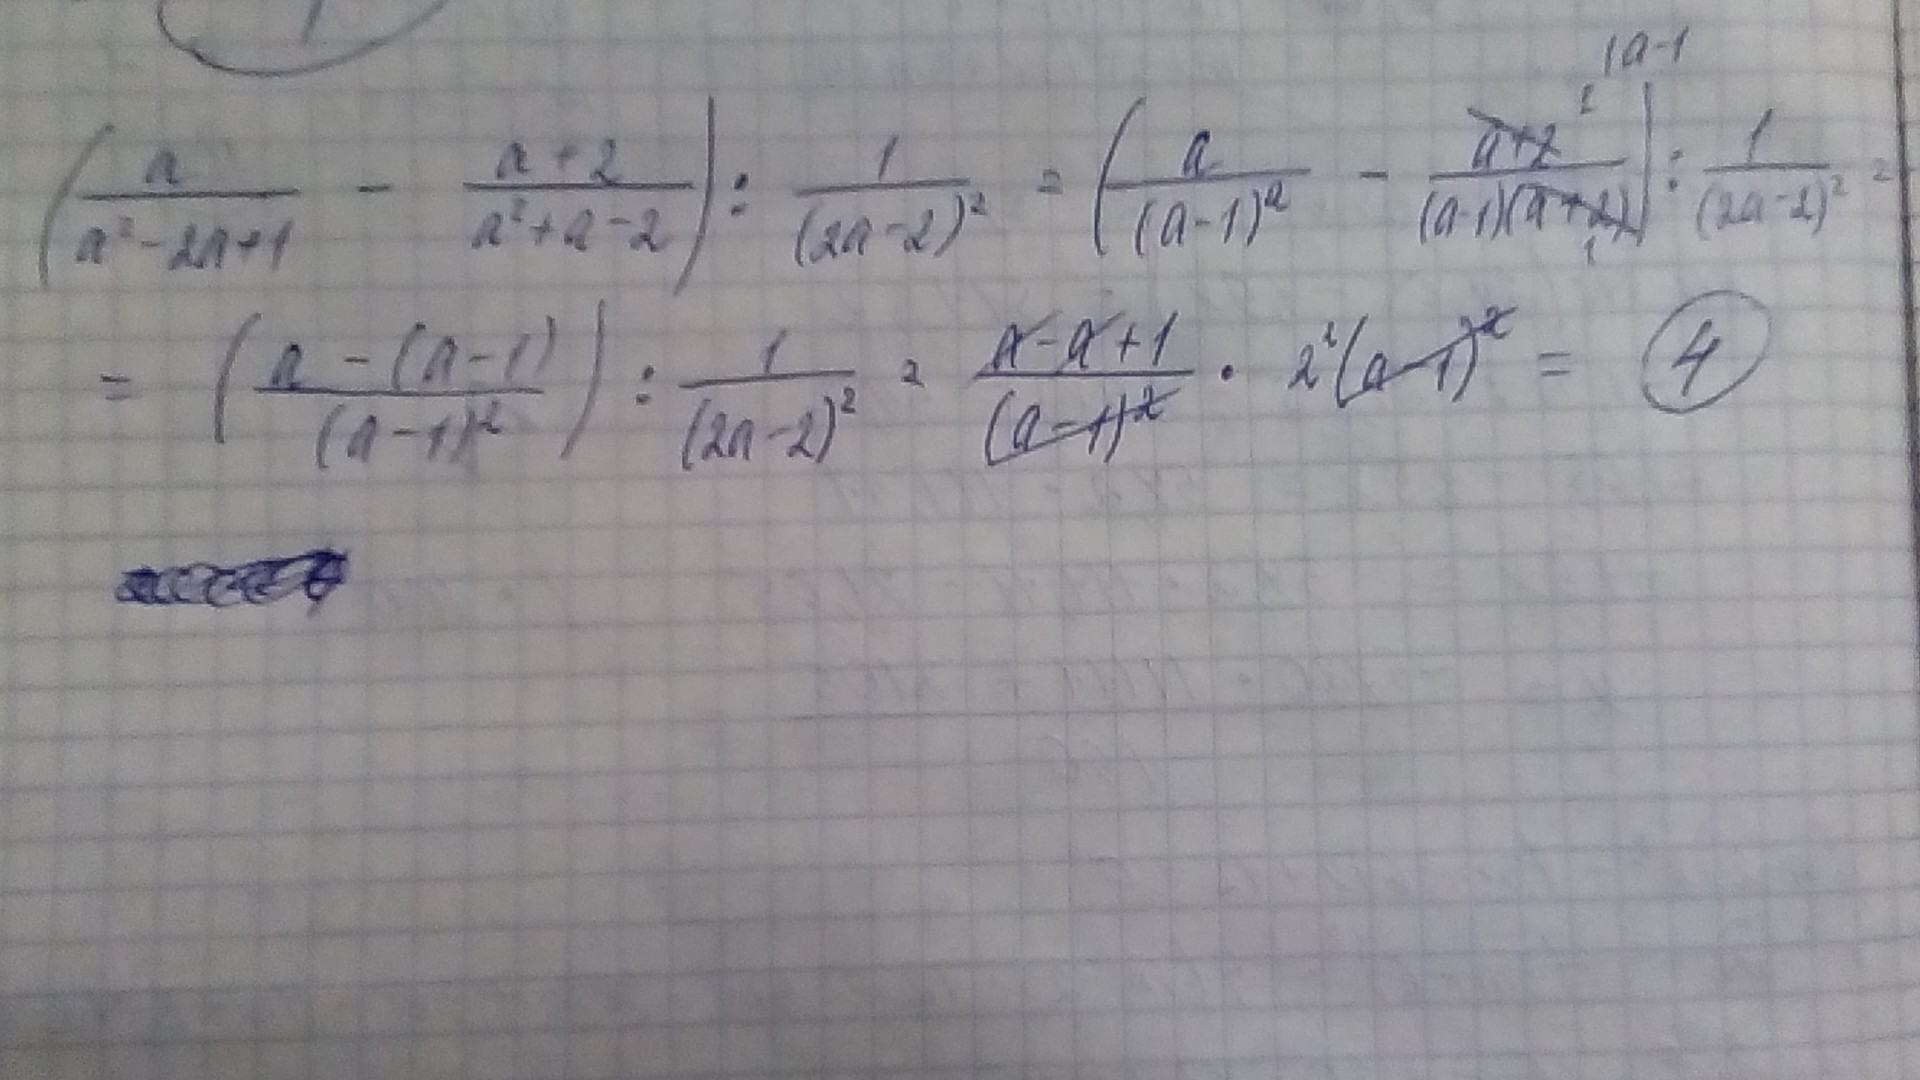 (a/(a²-2a+1) - (a+2)/(a²+a-2)) : 1/(2a-2)² = (a/(a-1)² - (a+2)¹/((a-1)(a+2)₁) |a-1) : 1/(2a-2)² =
= ((a-(a-1))/(a-1)²) : 1/(2a-2)² = (a-a+1)/(a-1)² · 2²(a-1)² = 4